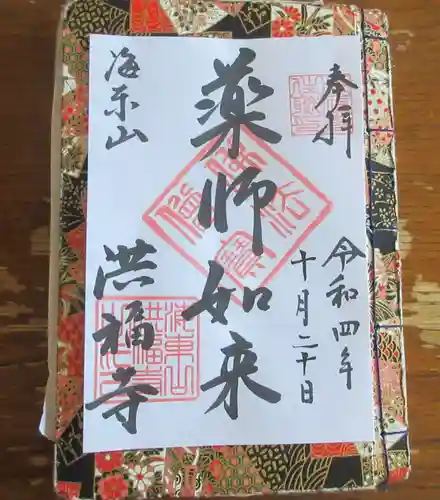 奉拝
令和四年
十月二十日
薬師如来
海東山
洪福寺
佛法僧寳
海東山洪福寺之印